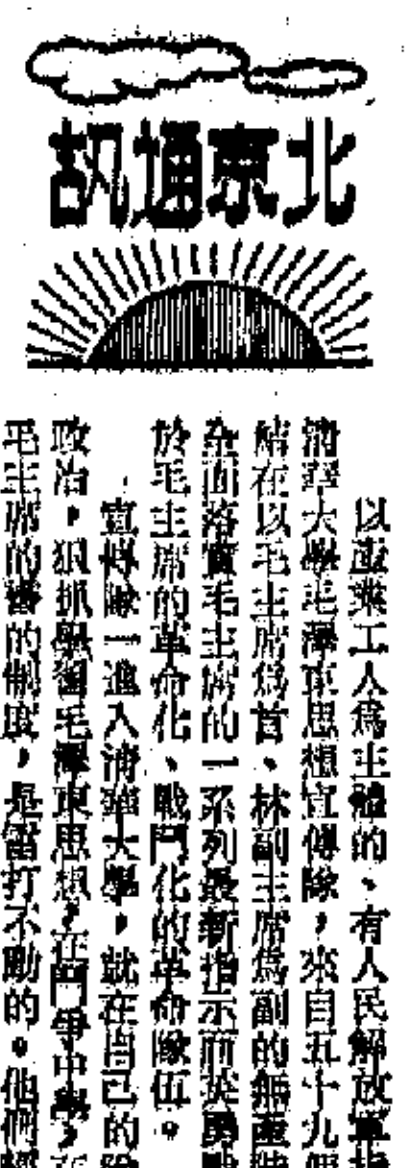 北京通訊
以產業工人爲主體的、有人民解放軍指
清華大學毛澤東思想宣傳隊，來自五十九個
結在以毛主席爲首、林副主席爲副的無產階
全面落實毛主席的一系列最新指示而英勇戰
於毛主席的革命化、戰鬥化的革命隊伍。
宣傳隊一進入清華大學，就在自己的隊
政治，狠抓學習毛澤東思想，在鬥爭中學，在
毛主席的書的制度，是雷打不動的。他們